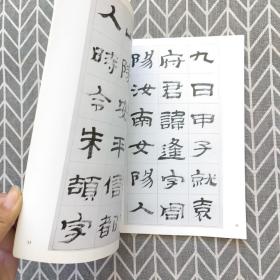 九日甲子就袁
府君諱逢字周
陽汝南女陽人
山陵安平信都
人時令朱頡字